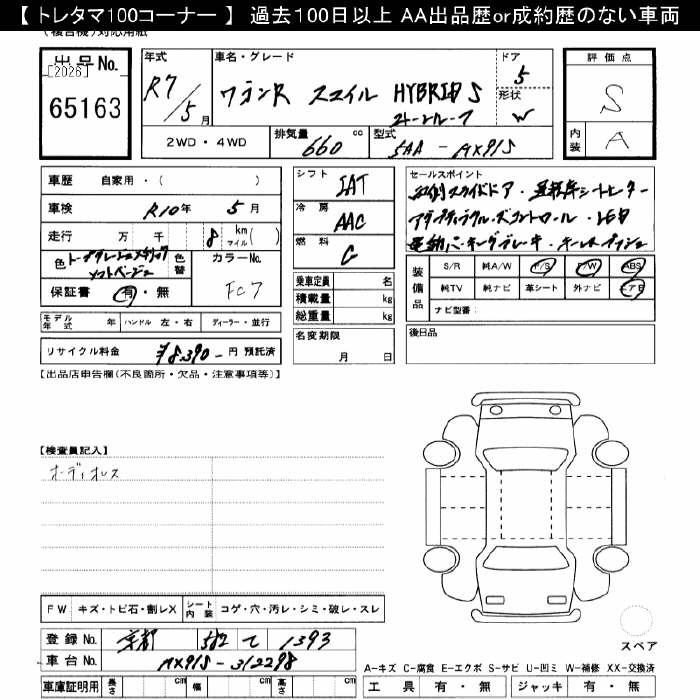 【 トレタマ100コーナー 】 過去100日以上 AA出品歴or成約歴のない車両
(複合機)対応用紙
出品No.
[2026]
65163
年式
R7/5月
車名・グレード
ワゴンR スマイル HYBRID S
2トーンルーフ
ドア
5
形状
W
2WD・4WD
排気量 660 cc
型式 5AA-MX91S
評価点
S
内装 A
車歴 自家用・( )
車検 R10年 5月
走行 万 千 8 km マイル( )
色
ソフトベージュ
色替
カラーNo.
FC7
保証書 有・無
モデル年式 年 ハンドル 左・右 ディーラー・並行
リサイクル料金 ¥8,390- 円 預託済
シフト IAT
冷房 AAC
燃料 G
乗車定員 名
積載量 kg
総重量 kg
名変期限
月 日
セールスポイント
両側スライドドア・運転席シートヒーター
アダプティブクルーズコントロール・LED
電動パーキングブレーキ・キーレスプッシュ
装備品
S/R 純A/W P/S P/W ABS
純TV 純ナビ 革シート 外ナビ エアB
ナビ型番:
後日品
【出品店申告欄(不良箇所・欠品・注意事項等)】
【検査員記入】
オーディオレス
FW キズ・トビ石・割レX シート内装 コゲ・穴・汚レ・シミ・破レ・スレ
登録No. 京都 582 て 1393
車台No. MX91S-312298
車庫証明用 長さ cm 幅 cm 高さ cm
スペア
A-キズ C-腐食 E-エクボ S-サビ U-凹ミ W-補修 XX-交換済
工具 有・無 ジャッキ 有・無